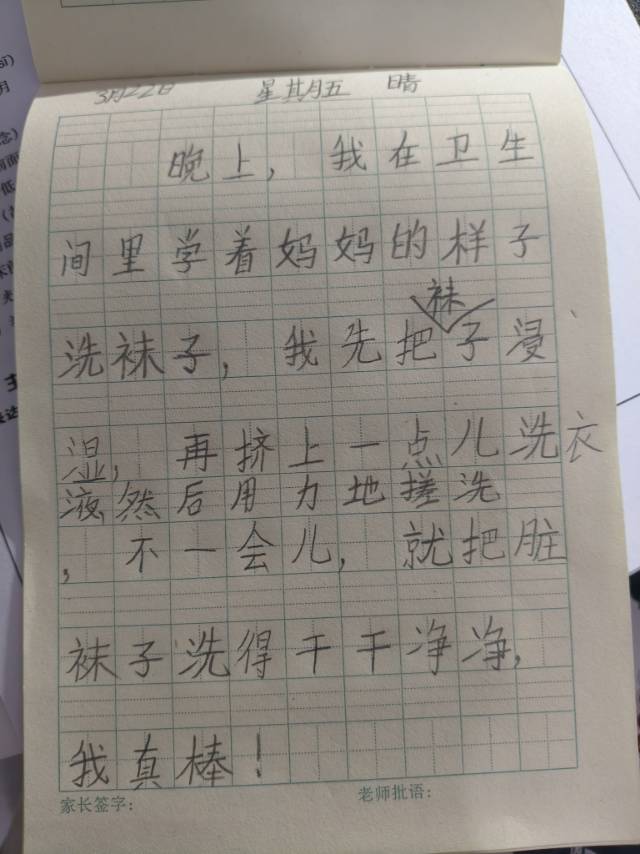 3月22日 星其月五 晴
晚上，我在卫生
间里学着妈妈的样子
洗袜子，我先把袜子浸
湿，再挤上一点儿洗衣
液然后用力地搓洗
，不一会儿，就把脏
袜子洗得干干净净，
我真棒！
家长签字： 老师批语：